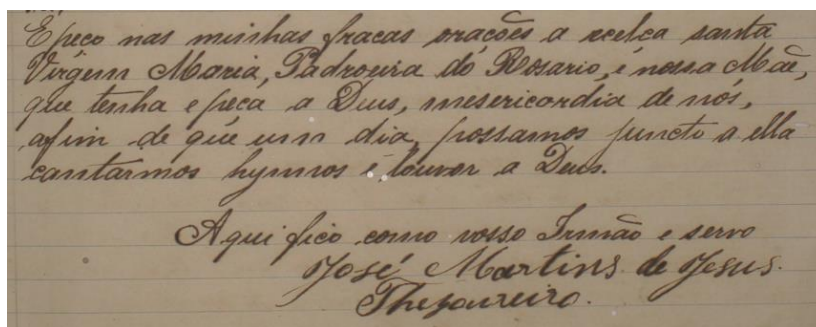 E peço nas minhas fracas orações a excelca santa
Virgem Maria, Padroeira do Rosario, é nossa Mãe,
que tenha e peça a Deus, mesericordia de nós,
afim de que um dia, possamos juncto a ella
cantarmos hymnos é louvor a Deus.
Aqui fico como vosso Irmão e servo
José Martins de Jesus.
Thesoureiro.